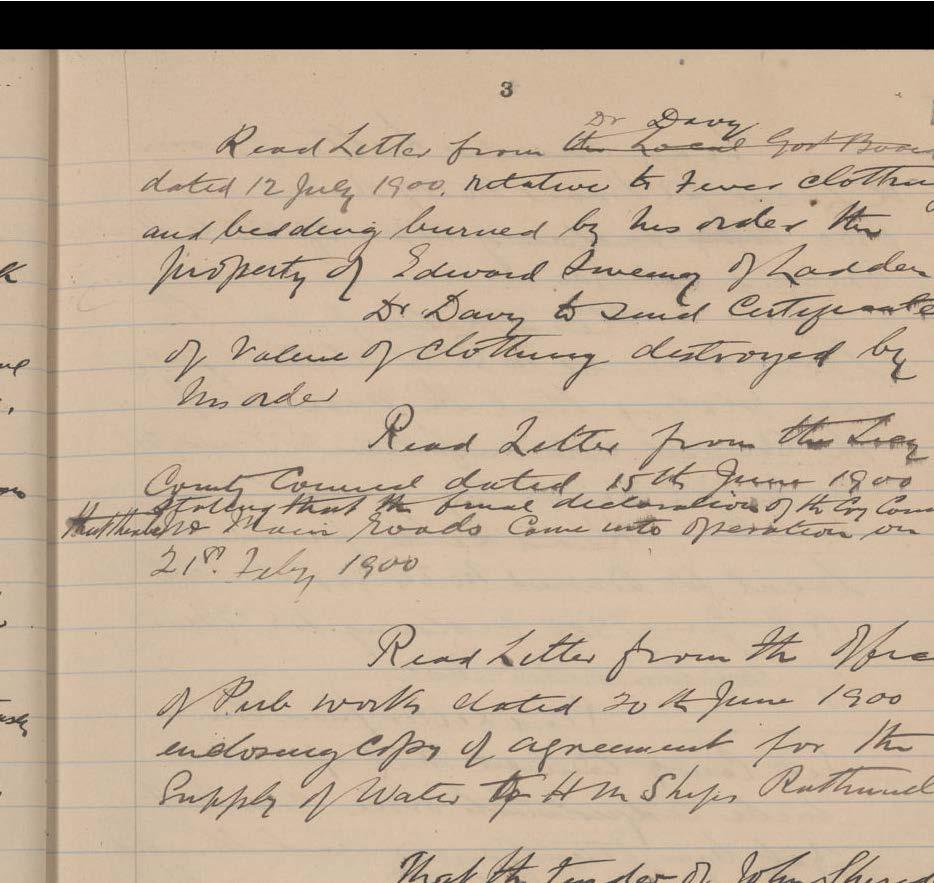 3
Dr Davy
Read Letter from the Local Govt Board
dated 12 July 1900. relative to Fever clothing
and bedding burned by his order the
property of Edward Sweeney of Ladden
Dr Davy to send Certificate
of Value of Clothing destroyed by
his order
Read Letter from the
County Council dated 15th June 1900
stating that the final declaration of the Coy Coun
Main Roads Came into operation on
21st. Feby 1900
Read Letter from the Office
of Pub works dated 20th June 1900
enclosing Copy of agreement for the
Supply of Water to H M Ships
That the tender of John